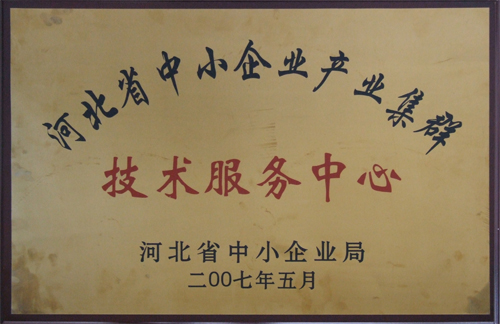 河北省中小企业产业集群
技术服务中心
河北省中小企业局
二00七年五月